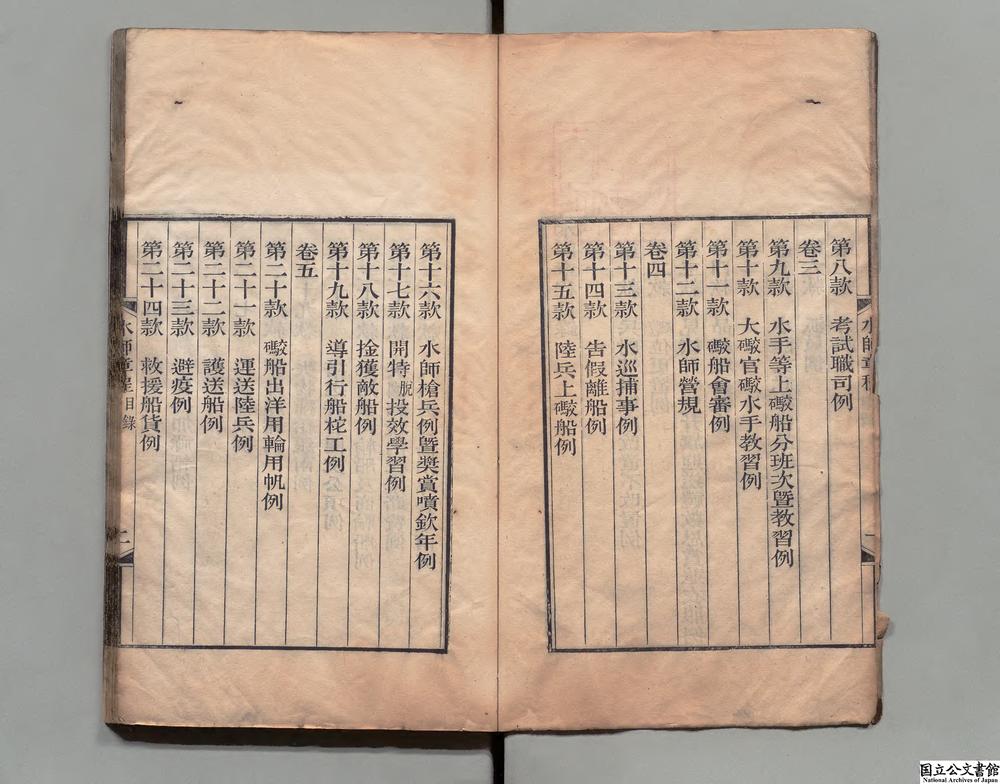 第八款 考試職司例
卷三
第九款 水手等上礮船分班次暨教習例
第十款 大礮官礮水手教習例
第十一款 礮船會審例
第十二款 水師營規
卷四
第十三款 水巡捕事例
第十四款 告假離船例
第十五款 陸兵上礮船例
第十六款 水師槍兵例暨獎賞噴欽年例
第十七款 開特脫投效學習例
第十八款 捦獲敵船例
第十九款 導引行船柁工例
卷五
第二十款 礮船出洋用輪用帆例
第二十一款 運送陸兵例
第二十二款 護送船例
第二十三款 避疫例
第二十四款 救援船貨例
水師章程 目錄
二
国立公文書館
National Archives of Japan